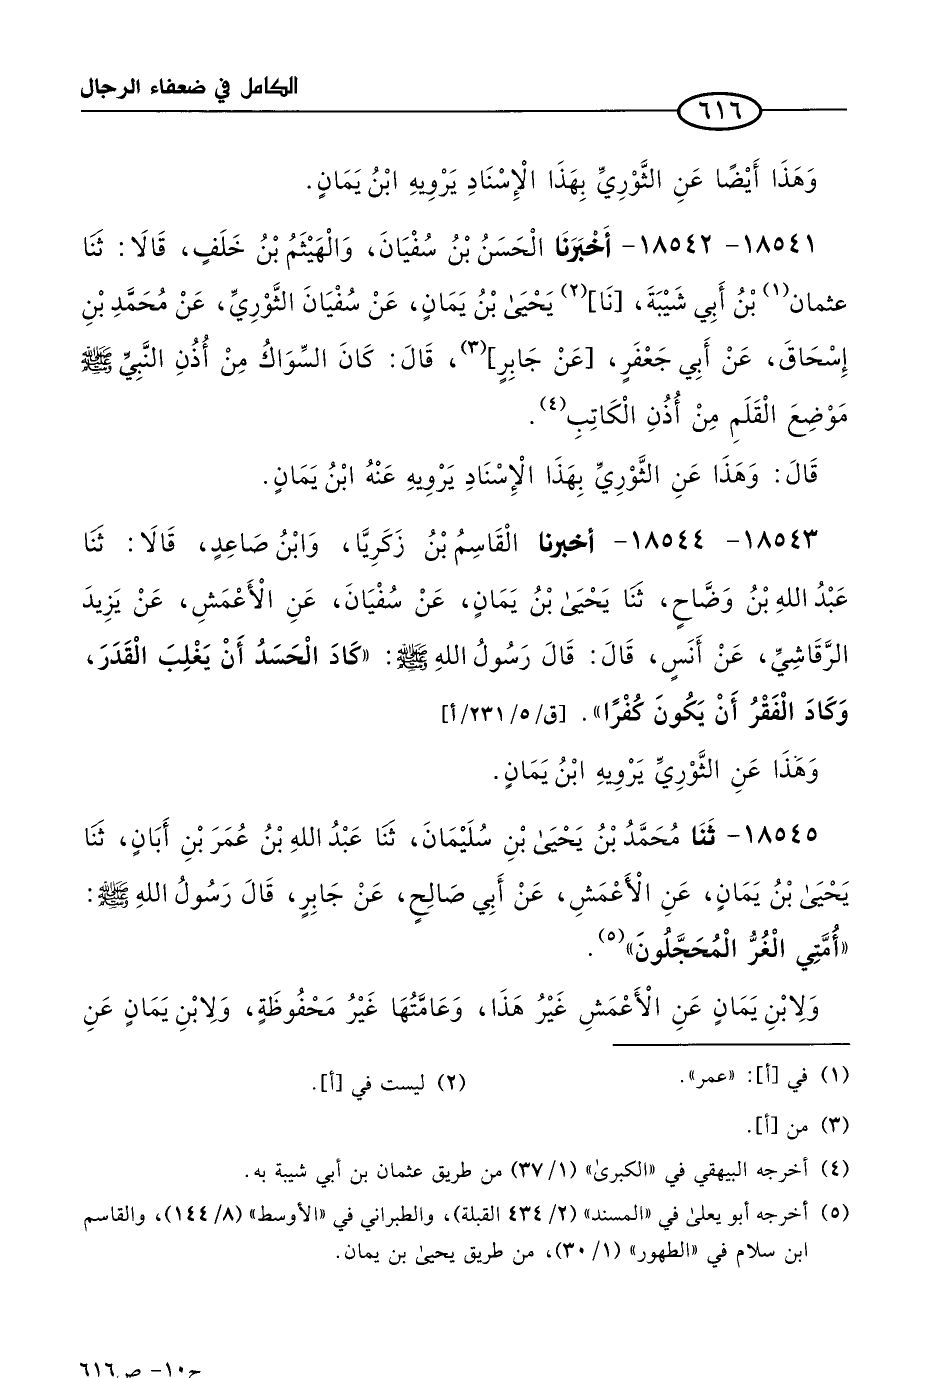 الكامل في ضعفاء الرجال
٦١٦
وَهَذَا أَيْضًا عَنِ الثَّوْرِيِّ بِهَذَا الْإِسْنَادِ يَرْوِيهِ ابْنُ يَمَانٍ.
١٨٥٤١- ١٨٥٤٢- أَخْبَرَنَا الْحَسَنُ بْنُ سُفْيَانَ، وَالْهَيْثَمُ بْنُ خَلَفٍ، قَالَا: ثَنَا
عثمان(١) بْنُ أَبِي شَيْبَةَ، [نَا](٢) يَحْيَىٰ بْنُ يَمَانٍ، عَنْ سُفْيَانَ الثَّوْرِيِّ، عَنْ مُحَمَّدِ بْنِ
إِسْحَاقَ، عَنْ أَبِي جَعْفَرٍ، [عَنْ جَابِرٍ](٣)، قَالَ: كَانَ السِّوَاكُ مِنْ أُذُنِ النَّبِيِّ ﷺ
مَوْضِعَ الْقَلَمِ مِنْ أُذُنِ الْكَاتِبِ(٤).
قَالَ: وَهَذَا عَنِ الثَّوْرِيِّ بِهَذَا الْإِسْنَادِ يَرْوِيهِ عَنْهُ ابْنُ يَمَانٍ.
١٨٥٤٣- ١٨٥٤٤- أخبرنا الْقَاسِمُ بْنُ زَكَرِيَّا، وَابْنُ صَاعِدٍ، قَالَا: ثَنَا
عَبْدُ اللهِ بْنُ وَضَّاحٍ، ثَنَا يَحْيَىٰ بْنُ يَمَانٍ، عَنْ سُفْيَانَ، عَنِ الْأَعْمَشِ، عَنْ يَزِيدَ
الرَّقَاشِيِّ، عَنْ أَنَسٍ، قَالَ: قَالَ رَسُولُ اللهِ ﷺ: «كَادَ الْحَسَدُ أَنْ يَغْلِبَ الْقَدَرَ،
وَكَادَ الْفَقْرُ أَنْ يَكُونَ كُفْرًا». [ق/٢٣١/٥/أ]
وَهَذَا عَنِ الثَّوْرِيِّ يَرْوِيهِ ابْنُ يَمَانٍ.
١٨٥٤٥- ثَنَا مُحَمَّدُ بْنُ يَحْيَىٰ بْنِ سُلَيْمَانَ، ثَنَا عَبْدُ اللهِ بْنُ عُمَرَ بْنِ أَبَانٍ، ثَنَا
يَحْيَىٰ بْنُ يَمَانٍ، عَنِ الْأَعْمَشِ، عَنْ أَبِي صَالِحٍ، عَنْ جَابِرٍ، قَالَ رَسُولُ اللهِ ﷺ:
«أُمَّتِي الْغُرُّ الْمُحَجَّلُونَ»(٥).
وَلِابْنِ يَمَانٍ عَنِ الْأَعْمَشِ غَيْرُ هَذَا، وَعَامَّتُهَا غَيْرُ مَحْفُوظَةٍ، وَلِابْنِ يَمَانٍ عَنِ
(١) في [أ]: «عمر». (٢) ليست في [أ].
(٣) من [أ].
(٤) أخرجه البيهقي في «الكبرىٰ» (١/ ٣٧) من طريق عثمان بن أبي شيبة به.
(٥) أخرجه أبو يعلىٰ في «المسند» (٢/ ٤٣٤ القبلة)، والطبراني في «الأوسط» (٨/ ١٤٤)، والقاسم
ابن سلام في «الطهور» (١/ ٣٠)، من طريق يحيىٰ بن يمان.
ج١٠- ص٦١٦